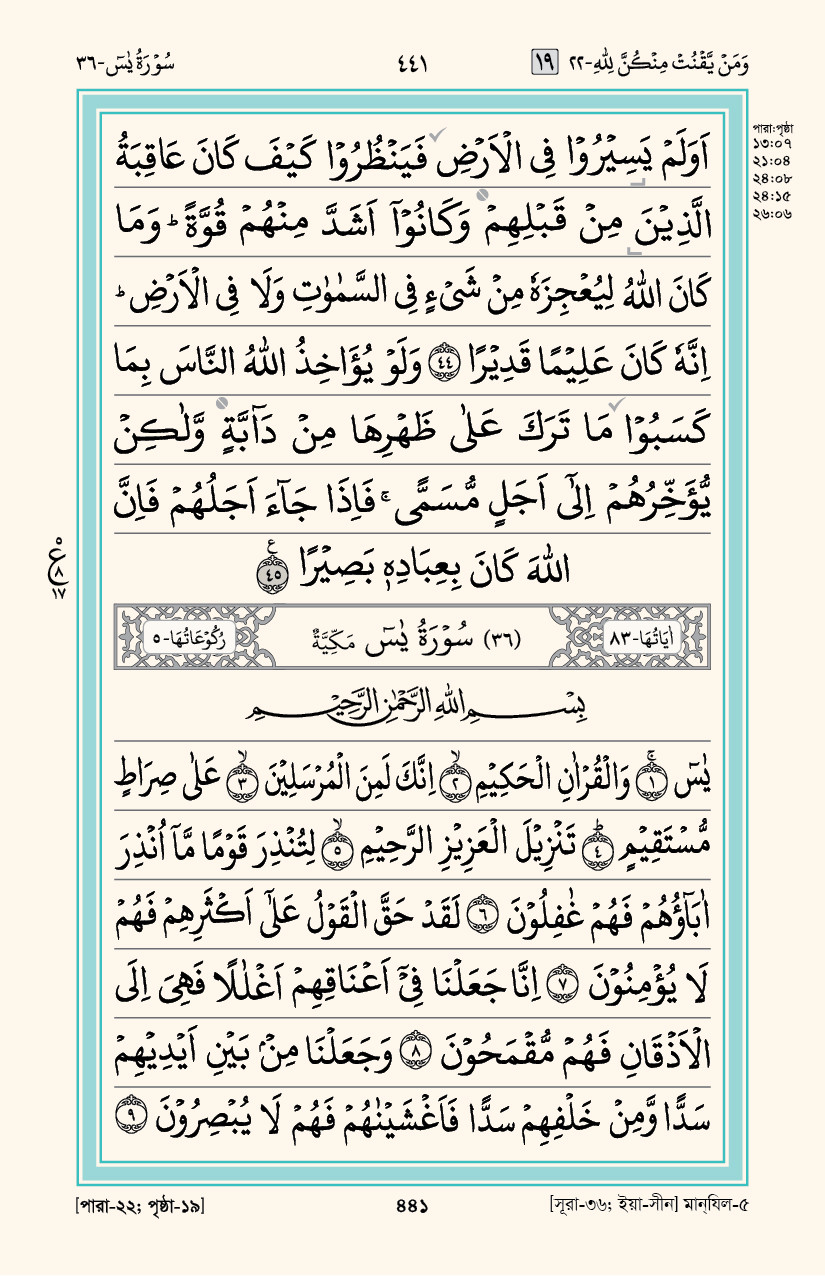 وَمَنْ يَّقْنُتْ مِنْكُنَّ لِلّٰهِ-٢٢ ١٩
٤٤١
سُوْرَةُ يٰسٓ-٣٦
পারা:পৃষ্ঠা
১৩:০৭
২১:০৪
২৪:০৮
২৪:১৫
২৬:০৬
اَوَلَمْ يَسِيْرُوْا فِى الْاَرْضِ فَيَنْظُرُوْا كَيْفَ كَانَ عَاقِبَةُ
الَّذِيْنَ مِنْ قَبْلِهِمْ وَكَانُوْٓا اَشَدَّ مِنْهُمْ قُوَّةً ؕ وَمَا
كَانَ اللهُ لِيُعْجِزَهٗ مِنْ شَىْءٍ فِى السَّمٰوٰتِ وَلَا فِى الْاَرْضِ ؕ
اِنَّهٗ كَانَ عَلِيْمًا قَدِيْرًا ﴿٤٤﴾ وَلَوْ يُؤَاخِذُ اللهُ النَّاسَ بِمَا
كَسَبُوْا مَا تَرَكَ عَلٰى ظَهْرِهَا مِنْ دَآبَّةٍ وَّلٰكِنْ
يُّؤَخِّرُهُمْ اِلٰٓى اَجَلٍ مُّسَمًّى ۚ فَاِذَا جَآءَ اَجَلُهُمْ فَاِنَّ
اللهَ كَانَ بِعِبَادِهٖ بَصِيْرًا ﴿٤٥﴾ ع
ع
٨
١٧
اٰيَاتُهَا-٨٣ (٣٦) سُوْرَةُ يٰسٓ مَكِّيَّةٌ رُكُوْعَاتُهَا-٥
بِسْمِ اللهِ الرَّحْمٰنِ الرَّحِيْمِ
يٰسٓ ۚ﴿١﴾ وَالْقُرْاٰنِ الْحَكِيْمِ ۙ﴿٢﴾ اِنَّكَ لَمِنَ الْمُرْسَلِيْنَ ۙ﴿٣﴾ عَلٰى صِرَاطٍ
مُّسْتَقِيْمٍ ؕ﴿٤﴾ تَنْزِيْلَ الْعَزِيْزِ الرَّحِيْمِ ۙ﴿٥﴾ لِتُنْذِرَ قَوْمًا مَّآ اُنْذِرَ
اٰبَآؤُهُمْ فَهُمْ غٰفِلُوْنَ ﴿٦﴾ لَقَدْ حَقَّ الْقَوْلُ عَلٰٓى اَكْثَرِهِمْ فَهُمْ
لَا يُؤْمِنُوْنَ ﴿٧﴾ اِنَّا جَعَلْنَا فِىْٓ اَعْنَاقِهِمْ اَغْلٰلًا فَهِىَ اِلَى
الْاَذْقَانِ فَهُمْ مُّقْمَحُوْنَ ﴿٨﴾ وَجَعَلْنَا مِنْۢ بَيْنِ اَيْدِيْهِمْ
سَدًّا وَّمِنْ خَلْفِهِمْ سَدًّا فَاَغْشَيْنٰهُمْ فَهُمْ لَا يُبْصِرُوْنَ ﴿٩﴾
[পারা-২২; পৃষ্ঠা-১৯]
৪৪১
[সূরা-৩৬; ইয়া-সীন] মান্‌যিল-৫